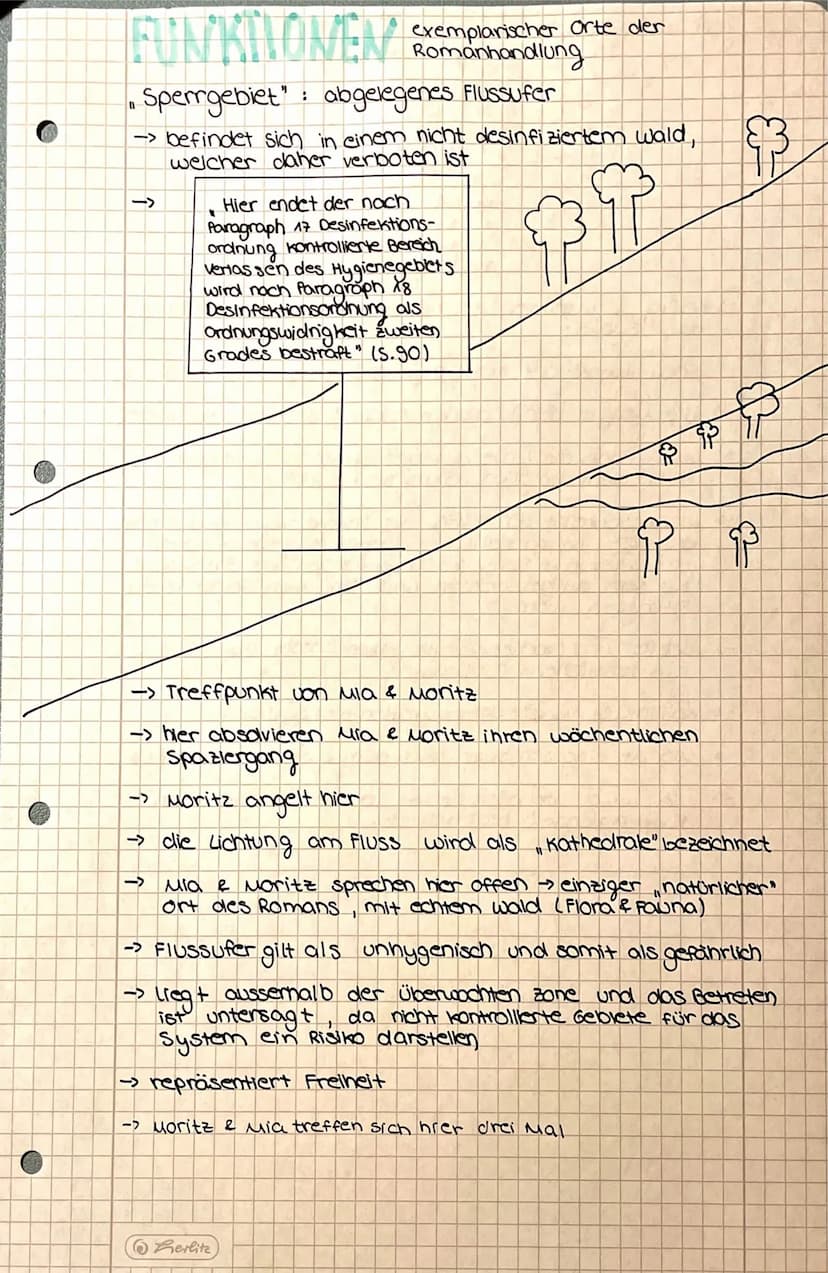 FUNKTIONEN exemplarischer Orte der
Romanhandlung
„Sperrgebiet" : abgelegenes Flussufer
-> befindet sich in einem nicht desinfiziertem Wald,
welcher daher verboten ist
->
„Hier endet der nach
Paragraph 17 Desinfektions-
ordnung kontrollierte Bereich
Verlassen des Hygienegebiets
wird nach Paragraph 18
Desinfektionsordnung als
Ordnungswidrigkeit zweiten
Grades bestraft" (S.90)
-> Treffpunkt von Mia & Moritz
-> hier absolvieren Mia & Moritz ihren wöchentlichen
Spaziergang
-> Moritz angelt hier
-> die Lichtung am Fluss wird als „Kathedrale" bezeichnet
-> Mia & Moritz sprechen hier offen -> einziger „natürlicher"
Ort des Romans, mit echtem Wald (Flora & Fauna)
-> Flussufer gilt als unhygenisch und somit als gefährlich
-> liegt ausserhalb der überwachten Zone und das Betreten
ist untersagt, da nicht kontrollierte Gebiete für das
System ein Risiko darstellen
-> repräsentiert Freiheit
-> Moritz & Mia treffen sich hier drei Mal
Herlitz